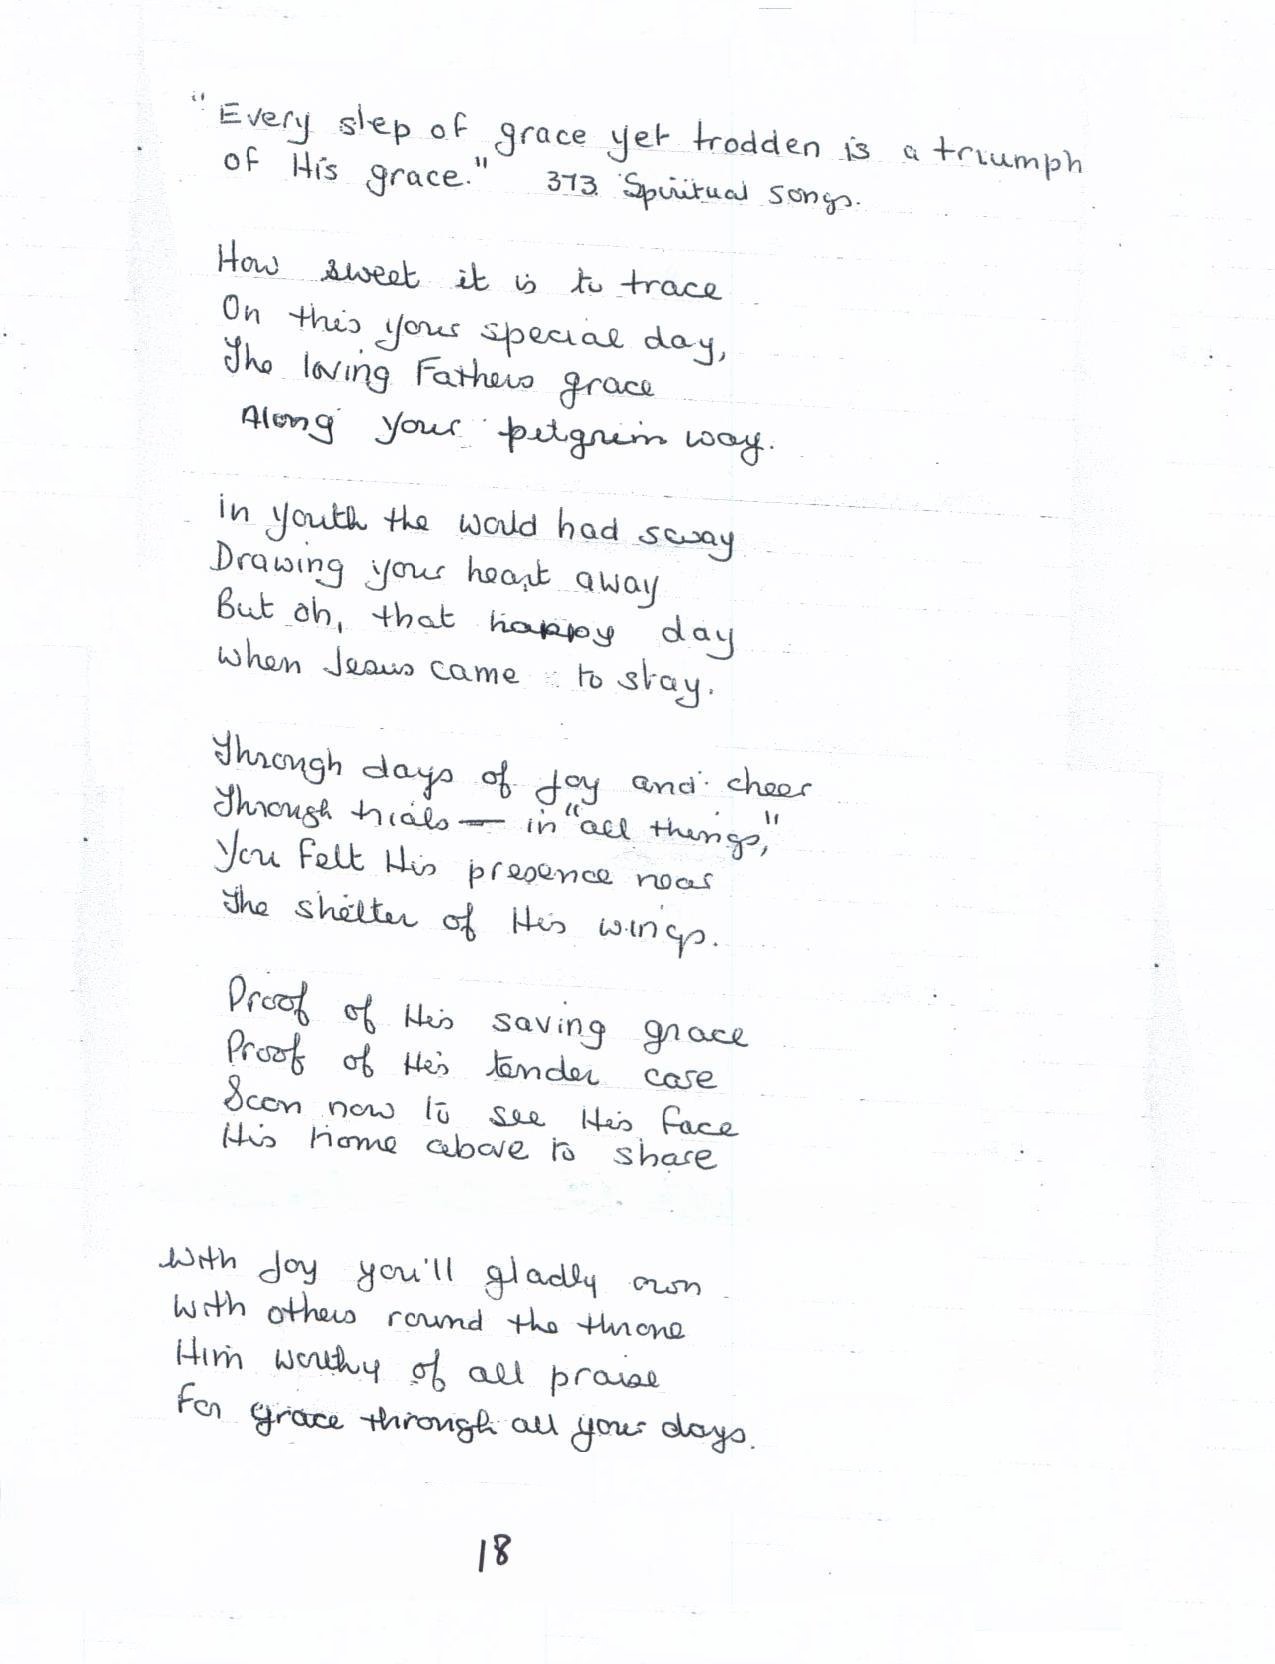 "Every step of grace yet trodden is a triumph
of His grace." 373 Spiritual songs.
How sweet it is to trace
On this your special day,
The loving Fathers grace
Along your pilgrim way.
in youth the world had sway
Drawing your heart away
But oh, that happy day
when Jesus came to stay.
Through days of joy and cheer
Through trials — in "all things,"
You felt His presence near
The shelter of His wings.
Proof of His saving grace
Proof of His tender care
Soon now to see His face
His home above to share
With joy you'll gladly own
With others round the throne
Him worthy of all praise
For grace through all your days.
18